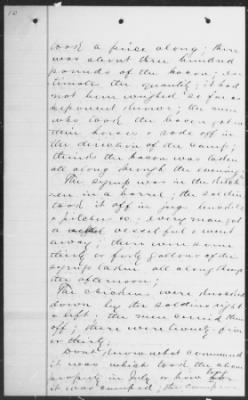 10
took a piece along; there
was about three hundred
pounds of the bacon;
timate the quantity; it had
not been weighed so far as
deponent knows; the men
who took the bacon got on
their horses & rode off in
the direction of the camp;
thinks the bacon was taken
all along through the evening.
The syrup was in the kitch
en in a barrel; the soldiers
took it off in jugs buckets
& pitchers &c; every man got
a vessel full & went
away; there were some
thirty or forty gallons of the
syrup taken all along through
the afternoon;
The chickens were knocked
down by the soldiers right
& left; the men carried them
off; there were twenty five
or thirty.
Don't know what command
it was which took the above
property in July or how long
it was camped; the